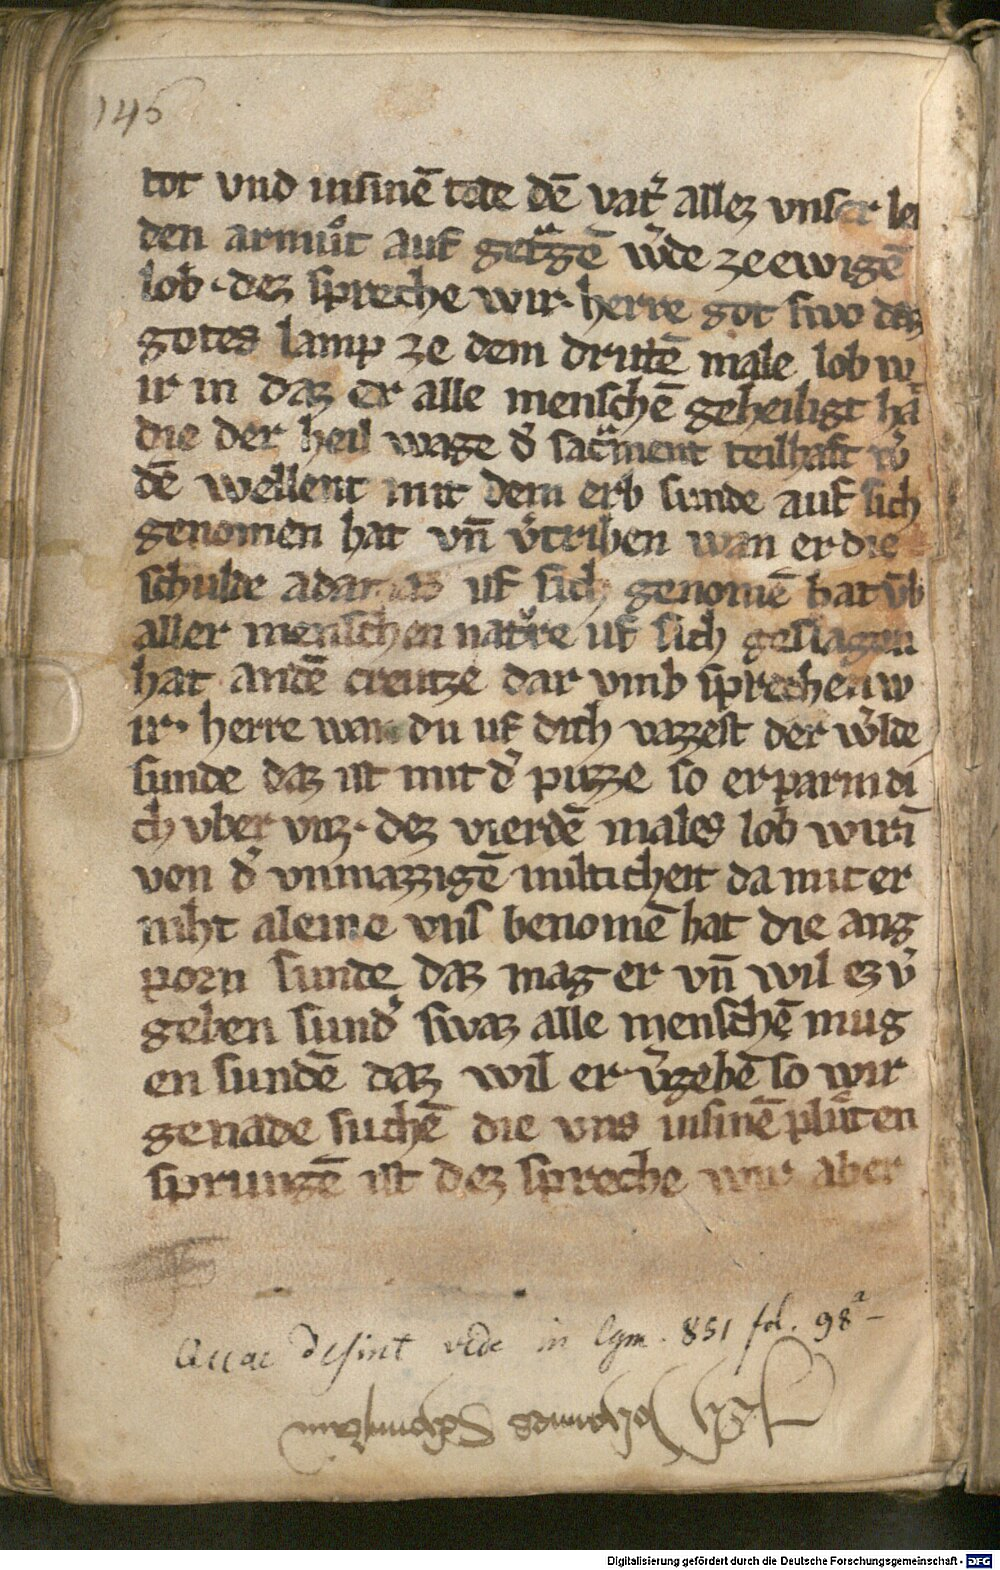 145
tot vnd insinē tode dē vat̉ allez vnser lei
den armuͦt auf getͣgē w̉de zeewigē
lob · dez spreche wir · herre got swo daz
gotes lamp ze dem drittē male lob w
ir in daz er alle menschē geheiligt ha
die der heil wage d̉ sacͣment teilhaft w̉
dē wellent mit dem erb sunde auf sich
genomen hat vn̄ v̉triben wan er die
schulde adames uf sich genomē hat v̄b
aller menschen natͮre uf sich geslagen
hat andē creutze dar vmb sprechen w
ir · herre wan du uf dich vazzest der w̉lde
sunde daz ist mit d̉ puzze so erparm di
ch vber vnz · dez vierdē males lob wir ī
von d̉ vnmazzigē milticheit da mit er
niht aleine vnſ benomē hat die ang
porn sunde daz mag er vn̄ wil ez v̉
geben sund̉ swaz alle menschē mug
en sundē daz wil er v̉gebē so wir
genade suchē die vns insinē pluͦten
sprungē ist dez spreche wir aber
Quae desint vide in Cgm. 851 fol. 98ᵃ –
Johannes